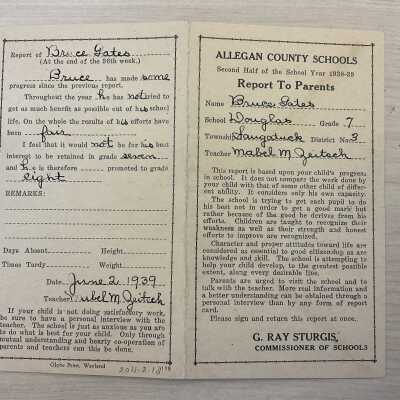 Report of Bruce Gates
(At the end of the 36th week.)
Bruce has made some
progress since the previous report.
Throughout the year he has not tried to
get as much benefit as possible out of his school
life. On the whole the results of his efforts have
been fair
I feel that it would not be for his best
interest to be retained in grade seven
and he is therefore promoted to grade
eight
REMARKS:
Days Absent Height
Times Tardy Weight
Date June 2 1939
Teacher Mabel M. Zeitsch
If your child is not doing satisfactory work,
be sure to have a personal interview with the
teacher. The school is just as anxious as you are
to do what is best for your child. Only through
mutual understanding and hearty co-operation of
parents and teachers can this be done.
Globe Print, Wayland
ALLEGAN COUNTY SCHOOLS
Second Half of the School Year 1938-39
Report To Parents
Name Bruce Gates
School Douglas Grade 7
Township Saugatuck District No. 3
Teacher Mabel M. Zeitsch
This report is based upon your child's progress
in school. It does not compare the work done by
your child with that of some other child of differ-
ent ability. It considers only his own capacity.
The school is trying to get each pupil to do
his best not in order to get a good mark but
rather because of the good he derives from his
efforts. Children are taught to recognize their
weakness as well as their strength and honest
efforts to improve are recognized.
Character and proper attitudes toward life are
considered as essential to good citizenship as are
knowledge and skill. The school is attempting to
help your child develop, to the greatest possible
extent, along every desirable line.
Parents are urged to visit the school and to
talk with the teacher. More real information and
a better understanding can be obtained through a
personal interview than by any form of report
card.
Please sign and return this report at once.
G. RAY STURGIS,
COMMISSIONER OF SCHOOLS